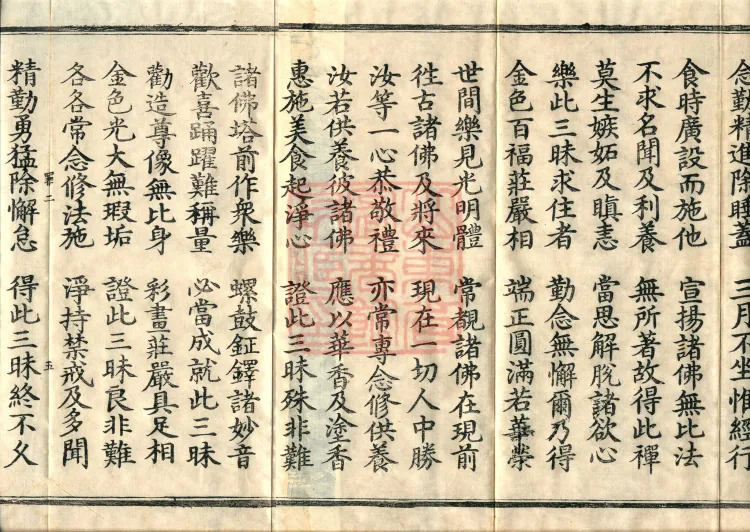 念勤精進除睡蓋　三月不坐惟經行
食時廣設而施他　宣揚諸佛無比法
不求名聞及利養　無所著故得此禪
莫生嫉妬及瞋恚　當思解脫諸欲心
樂此三昧求住者　勤念無懈爾乃得
金色百福莊嚴相　端正圓滿若華榮
世間樂見光明體　常覩諸佛在現前
徃古諸佛及將來　現在一切人中勝
汝等一心恭敬禮　亦常專念修供養
汝若供養彼諸佛　應以華香及塗香
惠施美食起淨心　證此三昧殊非難
諸佛塔前作衆樂　螺鼓鉦鐸諸妙音
歡喜踊躍難稱量　必當成就此三昧
勸造尊像無比身　彩畫莊嚴具足相
金色光大無瑕垢　證此三昧良非難
各各常念修法施　淨持禁戒及多聞
罪二　五
精勤勇猛除懈怠　得此三昧終不久